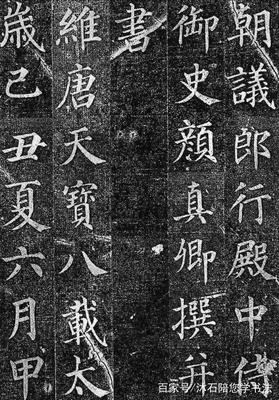 朝議郎行殿中侍
御史顏真卿撰并
書
維唐天寶八載太
歲己丑夏六月甲
百家号/沐石陪您学书法